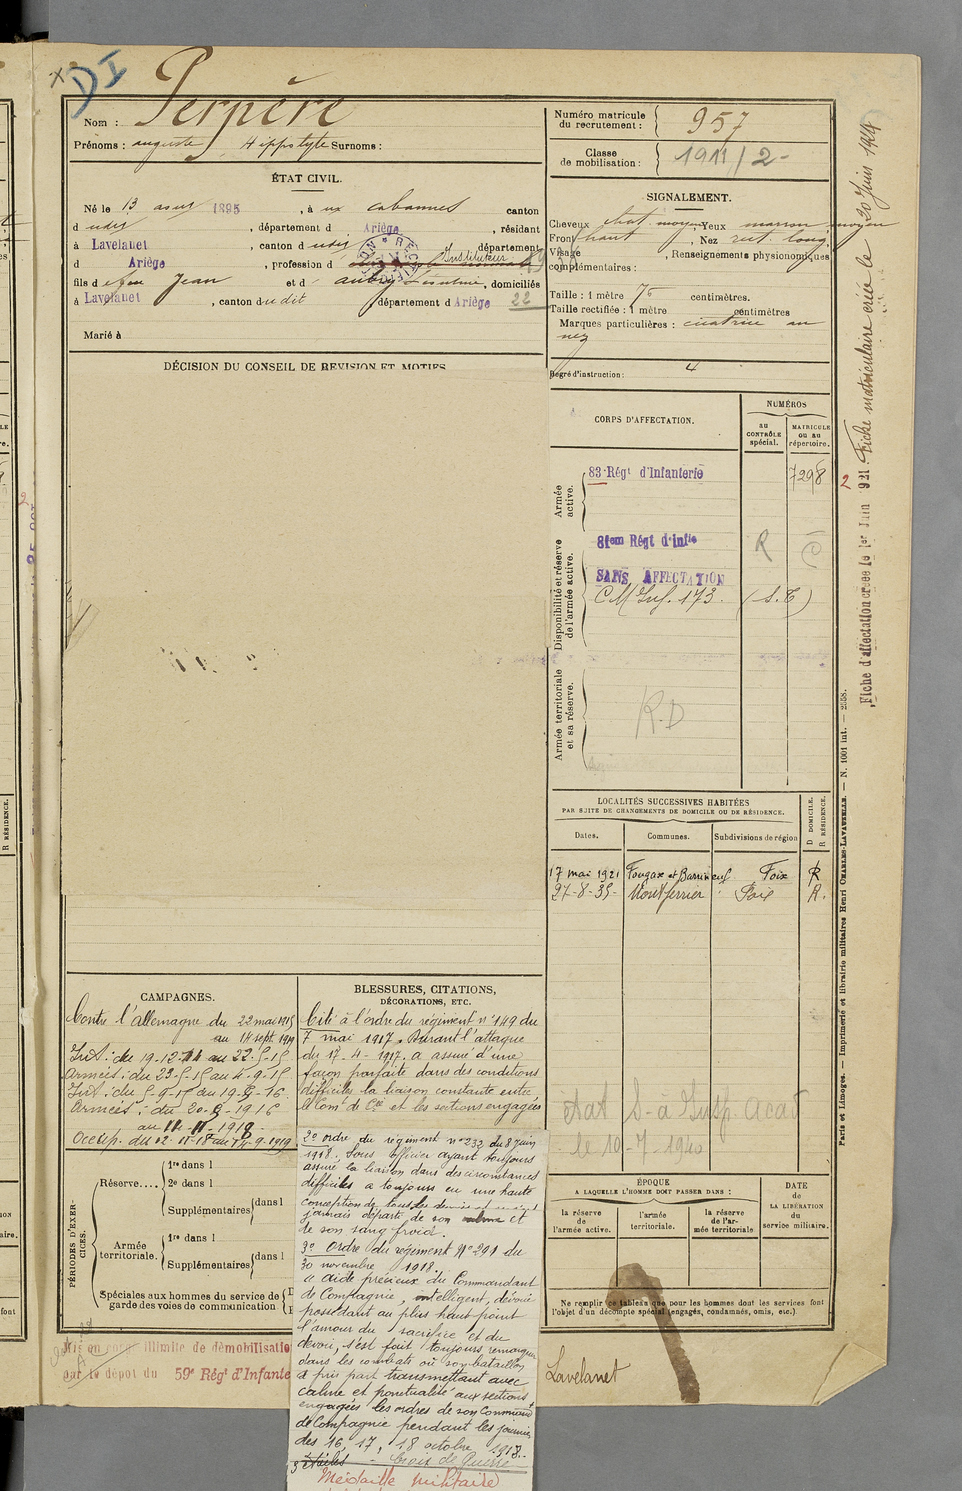 DI
Nom : Perpère
Prénoms : auguste Hippolyte Surnoms :
ÉTAT CIVIL.
Né le 13 aout 1895, à ux cabannes canton
d udit, département d Ariège, résidant
à Lavelanet, canton d udit, département
d Ariège, profession d Instituteur
fils d e feu Jean et d aubry, domiciliés
à Lavelanet, canton d udit département d Ariège 22
Marié à
DÉCISION DU CONSEIL DE REVISION ET MOTIFS
Numéro matricule
du recrutement : 957
Classe
de mobilisation : 1911/2-
SIGNALEMENT.
Cheveux chat. moyen Yeux marron moyen
Front haut, Nez rect. long
Visage, Renseignements physionomiques
complémentaires :
Taille : 1 mètre 75 centimètres.
Taille rectifiée : 1 mètre centimètres
Marques particulières : cicatrice au
nez
Degré d'instruction : 4
CORPS D'AFFECTATION.
NUMÉROS
au
CONTRÔLE
spécial.
MATRICULE
ou au
répertoire.
Armée
active.
83 Régt d'Infanterie 7298
Disponibilité et réserve
de l'armée active.
81em Régt d'Infie R
SANS AFFECTATION
C M Inf. 173. (S.T)
Armée territoriale
et sa réserve.
R.D
LOCALITÉS SUCCESSIVES HABITÉES
PAR SUITE DE CHANGEMENTS DE DOMICILE OU DE RÉSIDENCE.
Dates. Communes. Subdivisions de région
D DOMICILE.
R RÉSIDENCE.
17 mai 1921 Fougax et Barrineuf Foix R
27-8-35- Montferrier Foix R.
état S- à Insp. Acad
le 10-7-1940
CAMPAGNES.
Contre l'allemagne du 22 mai 1915
au 14 sept. 1919
Int : du 19-12-14 au 22-5-15
Armées : du 23-5-15 au 4-9-15
Int : du 5-9-15 au 19-9-16
Armées : du 20-9-1916
au 11-11-1918-
Occup. du 12-11-18 au 14-9-1919
BLESSURES, CITATIONS,
DÉCORATIONS, ETC.
Cité à l'ordre du régiment n° 149 du
7 mai 1917. Durant l'attaque
du 17-4-1917, a assuré d'une
façon parfaite dans des conditions
difficiles la liaison constante entre
le Com de Cie et les sections engagées
2° ordre du régiment n° 233 du 8 juin
1918. Sous officier ayant toujours
assuré la liaison dans des circonstances
difficiles a toujours eu une haute
conception de tous les
jamais départi de son calme et
de son sang froid.
3° ordre du régiment N° 291 du
30 novembre 1918.
a aide précieux du Commandant
de Compagnie, intelligent, dévoué
possédant au plus haut point
l'amour du sacrifice et du
devoir, s'est fait toujours remarquer
dans les combats où son bataillon
a pris part transmettant avec
calme et ponctualité aux sections
engagées les ordres de son Command
de Compagnie pendant les journées
des 16, 17, 18 octobre 1918.
3 étoiles - Croix de Guerre
Médaille militaire
PÉRIODES D'EXER-
CICES.
Réserve....
1re dans l
2e dans l
Supplémentaires dans l
Armée
territoriale.
1re dans l
Supplémentaires dans l
Spéciales aux hommes du service de
garde des voies de communication
ÉPOQUE
A LAQUELLE L'HOMME DOIT PASSER DANS :
DATE
DE
LA LIBÉRATION
du
service militaire.
la réserve
de
l'armée active.
l'armée
territoriale.
la réserve
de l'ar-
mée territoriale
Ne remplir ce tableau que pour les hommes dont les services font
l'objet d'un décompte spécial (engagés, condamnés, omis, etc.)
Mis en congé illimité de démobilisatio
par le dépôt du 59e Régt d'Infante
Lavelanet
Fiche d'affectation créée le 1er Juin 921 Fiche matriculaire créée le 20 Juin 1924
2
Paris et Limoges. — Imprimerie et librairie militaires Henri CHARLES-LAVAUZELLE. — N. 1001 int. — 2558.
R RÉSIDENCE.